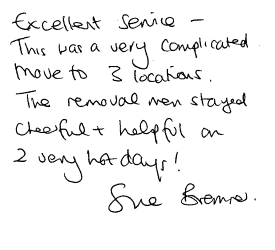 Excellent Service -
This was a very complicated
move to 3 locations.
The removal men stayed
cheerful + helpful on
2 very hot days!
Sue